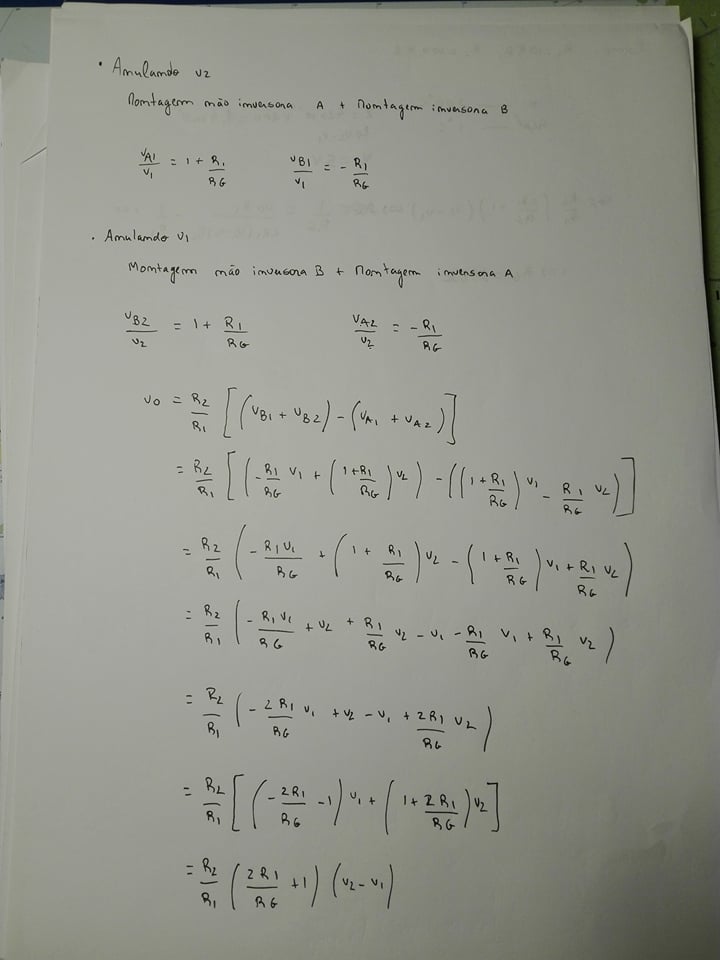 • Anulando v2
Montagem não inversora A + Montagem inversora B
vA1/v1 = 1 + R1/RG vB1/v1 = - R1/RG
. Anulando v1
Montagem não inversora B + Montagem inversora A
vB2/v2 = 1 + R1/RG vA2/v2 = - R1/RG
vo = R2/R1 [(vB1 + vB2) - (vA1 + vA2)]
= R2/R1 [(-R1/RG v1 + (1+R1/RG) v2) - ((1+R1/RG) v1 - R1/RG v2)]
= R2/R1 (- R1v1/RG + (1 + R1/RG) v2 - (1+R1/RG) v1 + R1/RG v2)
= R2/R1 (- R1v1/RG + v2 + R1/RG v2 - v1 - R1/RG v1 + R1/RG v2)
= R2/R1 (- 2R1/RG v1 + v2 - v1 + 2R1/RG v2)
= R2/R1 [(-2R1/RG - 1) v1 + (1 + 2R1/RG) v2]
= R2/R1 (2R1/RG + 1) (v2 - v1)